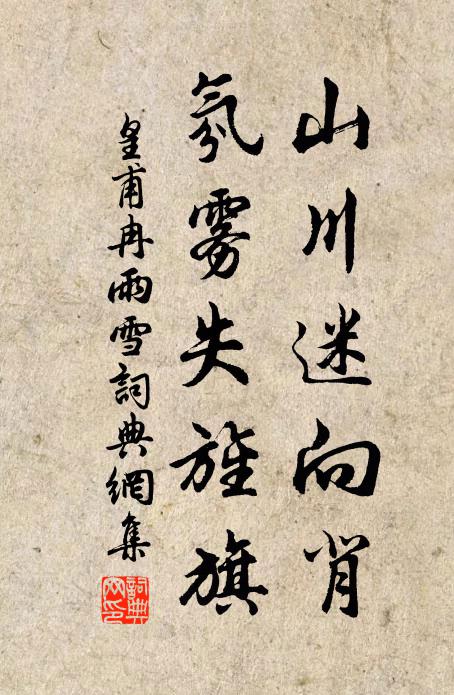 山川迷向背
氛雾失旌旗
皇甫冉雨雪詞典網集
詞典网印